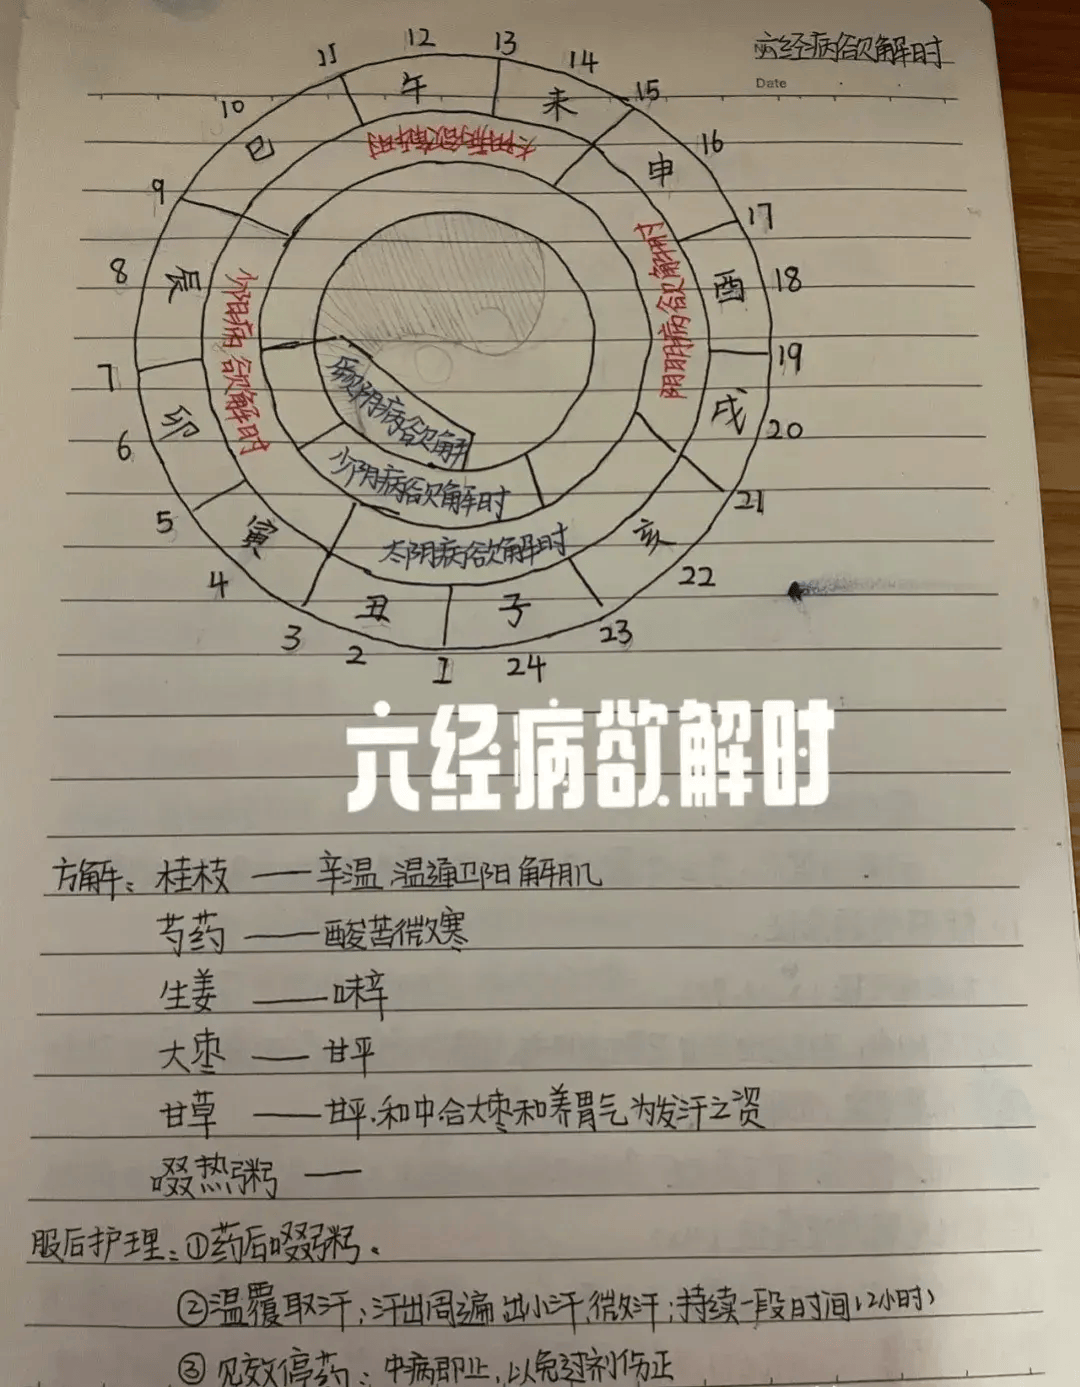 六经病欲解时
Date
11 12 13 14 15 16 17 18 19 20 21 22 23 24 1 2 3 4 5 6 7 8 9 10
午 未 申 酉 戌 亥 子 丑 寅 卯 辰 巳
太阳病欲解时
阴明病欲解时
少阳病欲解时
厥阴病欲解
少阴病欲解时
太阴病欲解时
六经病欲解时
方解：桂枝 —— 辛温 温通卫阳 解肌
芍药 —— 酸苦微寒
生姜 —— 味辛
大枣 —— 甘平
甘草 —— 甘平.和中.合大枣和养胃气 为发汗之资
啜热粥 ——
服后护理：①药后啜粥。
②温覆取汗；汗出周遍 出小汗，微汗；持续一段时间（2小时）
③见效停药：中病即止，以免过剂伤正